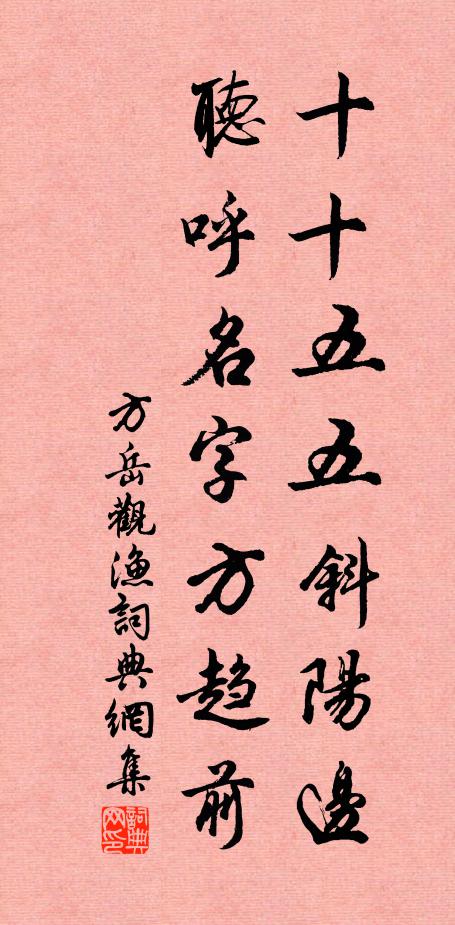 十十五五斜陽邊
聽呼名字方趨前
方岳觀漁詞典網集
詞典网印